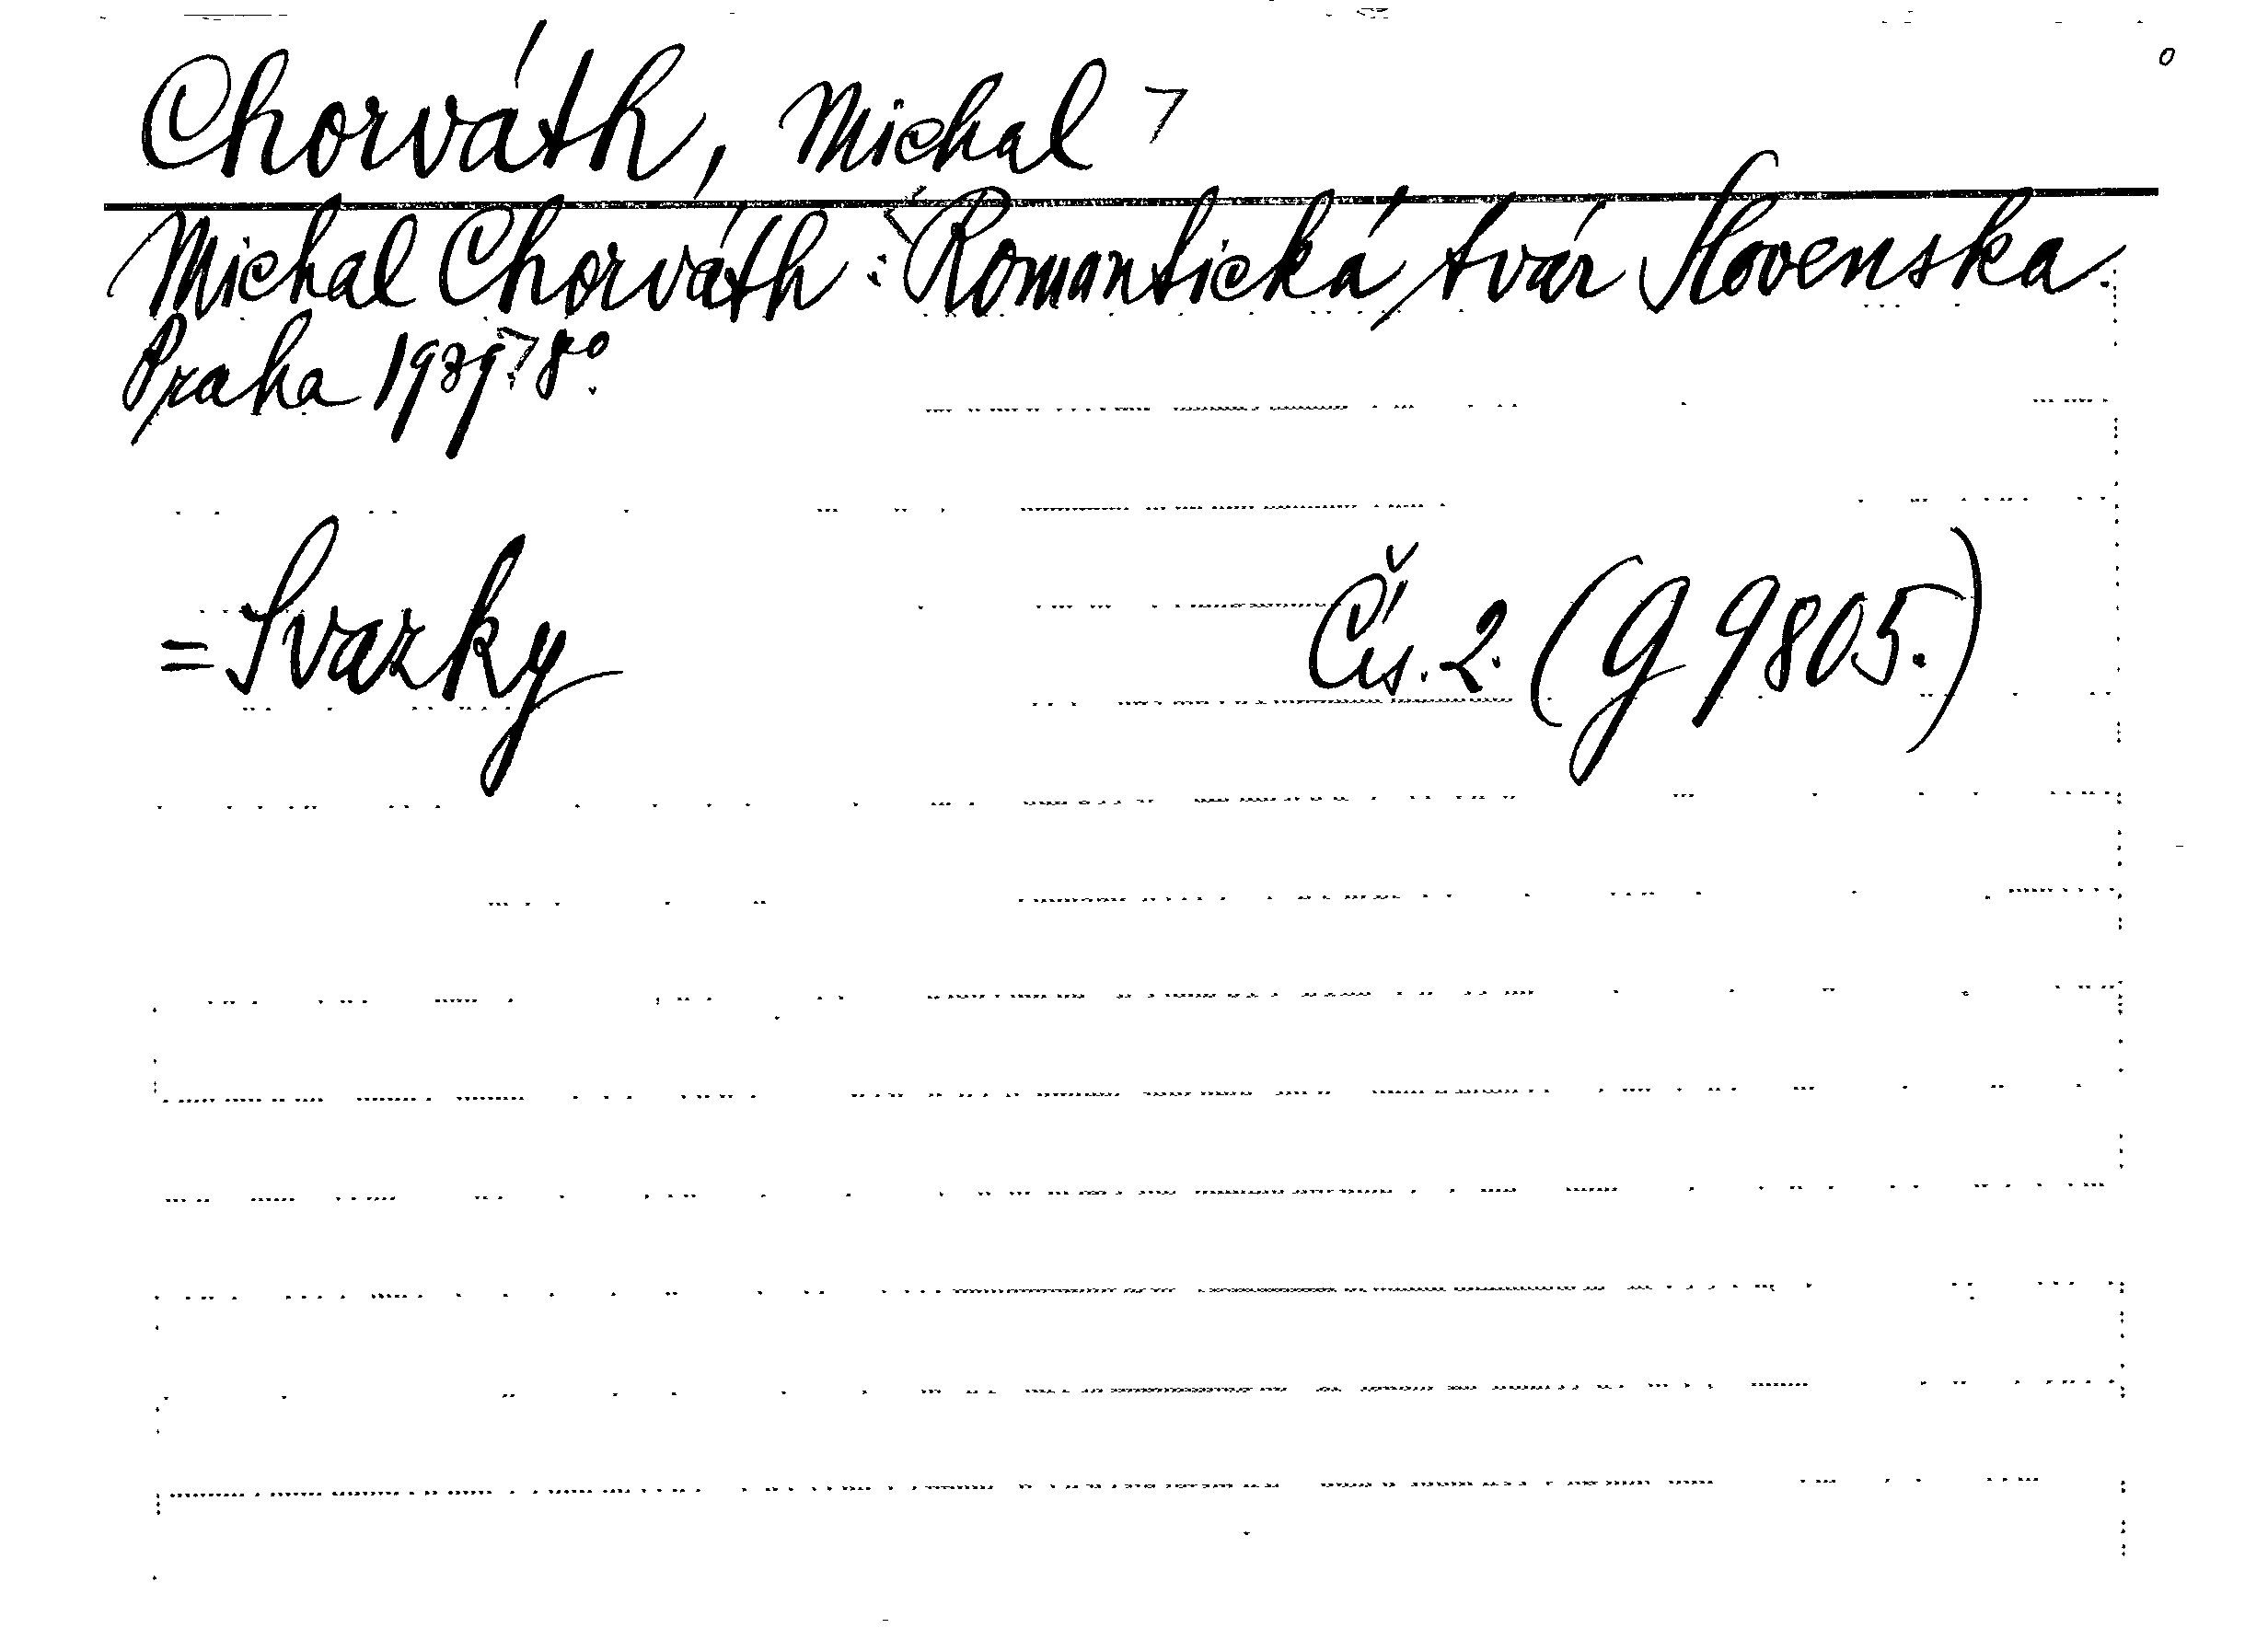 Chorváth, Michal
Michal Chorváth: Romantická tvár Slovenska.
Praha 1939. 8°.
= Svazky Čís. 2. (G 9805.)